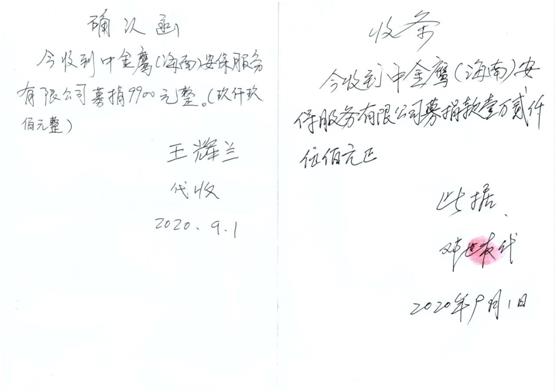 确认函
今收到中金鹰(海南)安保服务
有限公司募捐9900元整。(玖仟玖
佰元整)
王辉兰
代收
2020.9.1
收条
今收到中金鹰(海南)安
保服务有限公司募捐款壹万贰仟
伍佰元正
此据.
代
2020年9月1日